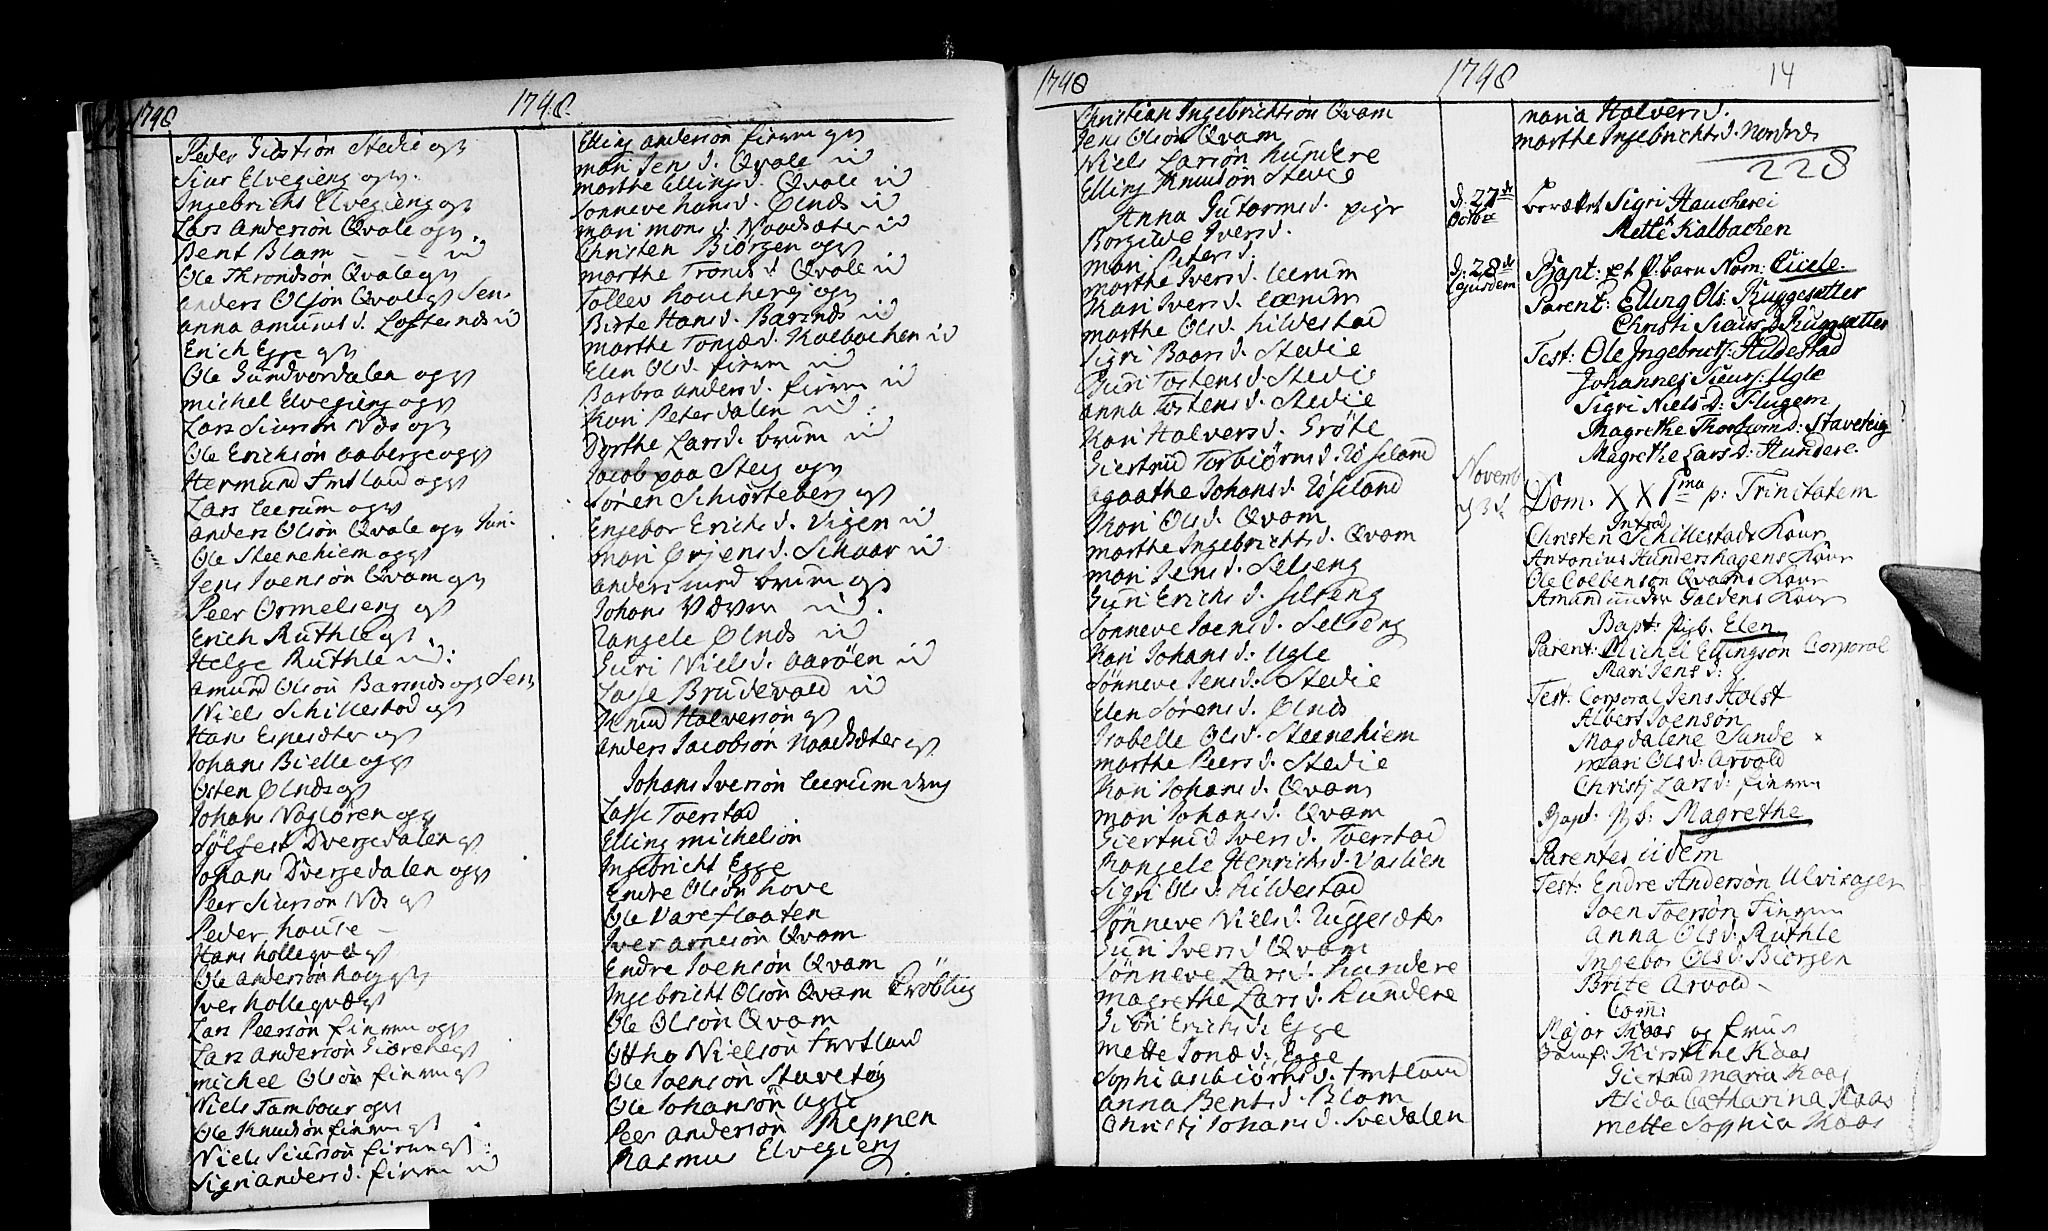 1748
1748
Peder Stedie og
Siur Elvegieng og
Ingebricht Elvegieng og
Lars Anderson Qvale og
Bent Blam
Ole Throndsön Qvale og
Anders Olsön Qvale Sen.
anna amunds d. Loftesnes
Erich Egge
Ole Gundvordalen og
michel Elvegieng og
Lars Siursön Næs og
Ole Erichsön aaberge og
Hermund Fretland og
Lars Leerum og
anders Olsön Qvale og Jun.
Ole Steenehiem og
Jens Joensön Qvam og
Peer Ormelseng
Erich Ruthle
Helge Ruthle
amund Olson Barsnes og Sen.
Niels Schillestad
Hans Espesæter
Johans Bielle og
Osten Olnes
Johans Nagløren og
Sølfest Dvergedalen
Johans Dvergedalen og
Peer Siursön Næs
Peder house
Hans hollequæ
Ole Anderson
Iver hollequæ
Lars Peersön finnen og
Lars Andersön
michel Olsön finnen
Niels Tambour og
Ole Knudsön finnen
Niels Siursön finnen
Sigri anders d. finnen
Elling anderson finnen
mari Jens d. Qvale
marthe Ellings d. Qvale
Sonneve hans d. Olnes
mari mons d. Naadsæter
Christen Biørgen og
marthe Tronds d. Qvale
Tollev
Birte Hans d. Barsnes
marthe d. Kalbachen
Elen Ols d. finnen
Barbra anders d. finnen
Kari Peterdalen
Dorthe Lars d. brum
Jacob paa Steig og
Søren Schiørteberg
Engebor Erichs d. Vigen
mari Ørjens d. Schaar
anders med brum
Johans Væver
Rangele Olnes
Guri Niels d. aarøen
Lasse Brudevold
Knud Halversön
Anders Jacobsön Naadsæter
Johans Iversön Leerum
Lasse Toerstad
Elling michelsön
Ingebricht Egge
Endre Olsön hove
Ole Vareflaaten
Iver arnesön Qvam
Endre Joensön Qvam
Ingebricht Olsön Qvam
Ole Olsön Qvam
Otthe Nielsön Fretland
Ole Joensön Staveteig
Ole Johansön Ugle
Peer Andersön Reppen
Rasmus Elvegieng
1748
1748
14
Christian Ingebrichtsön Qvam
Jens Olsön Qvam
Niels Larsön hundere
Elling Knudsön Stedie
Anna Gutorms d. pige
Borgilde Ivers d.
mari Peters d.
marthe Ivers d. Leerum
Kari Ivers d. Leerum
marthe Ols d. Kildestad
Sigri Baars d. Stedie
Guri Tostens d. Stedie
anna Tostens d. Stedie
Kari Halvers d. Grøte
Giertrud Torbiørns d.
agaathe Johans d.
Kari Ols d. Qvam
marthe Ingebrichts d. Qvam
mari Jens d. Selseng
Guri Erichs d. Selseng
Sonneve Joens d. Selseng
Kari Johans d. Ugle
Sønneve Jens d. Stedie
Elen Sørens d. Olnes
Isabelle Ols d. Steenehiem
marthe Peers d. Stedie
Kari Johans d. Qvam
mari Johans d. Qvam
Giertrud Ivers d. Toerstad
Rangele Henrichs d.
Sigri Ols d. Kildestad
Sønneve Niels d. Ruggesæter
Guri Ivers d. Qvam
Sønneve Lars d. hundere
magrethe Lars d. hundere
Erichs d. Egge
mette Jens d. Egge
Sophi d. Fretland
anna Bents d. Blam
Christi Johans d. Svedalen
maria Halvers d.
marthe Ingebrichts d.
228
d. 27de
Octobr
Sigri Haucherei
Mette Kalbachen
d: 28de
ejusdem
Bapt: et barn Nom: Cicele.
Parent: Elling Ols: Ruggesetter
Christi Siurs D. Ruggsetter
Test: Ole Ingebricts: Hildestad
Johannes Siurs: Ugle
Sigri Niels D: Flugem
Magrethe D: Staveteig
Magrethe Lars D: Hundere.
Novemb
d 3d
Dom. XX1ma p: Trinitatem
Introd
Christen Schillestads Kone
Antonius Hundershagens Kone
Ole Colbenson Qvams Kone
Amund under Kone
Bapt: pigb. Elen
Parent: Michel Ellingson Corporal
Mari Jens d:
Test: Corporal Jens Holst
Albert Joenson
Magdalene Sunde
mari Ols d: Arvold
Christj Lars d: finnen
Bapt: Magrethe
Parentes iidem
Test: Endre Andersön Ulvisager
Joen Toersön Finnen
Anna Ols d: Ruthle
Ingebor Ols d: Biørgen
Brite Arvold
Com:
Major Kaas og frue
Kirstine Kaas
Giertrud maria Kaas
Catharina Kaas
mette Sophia Kaas